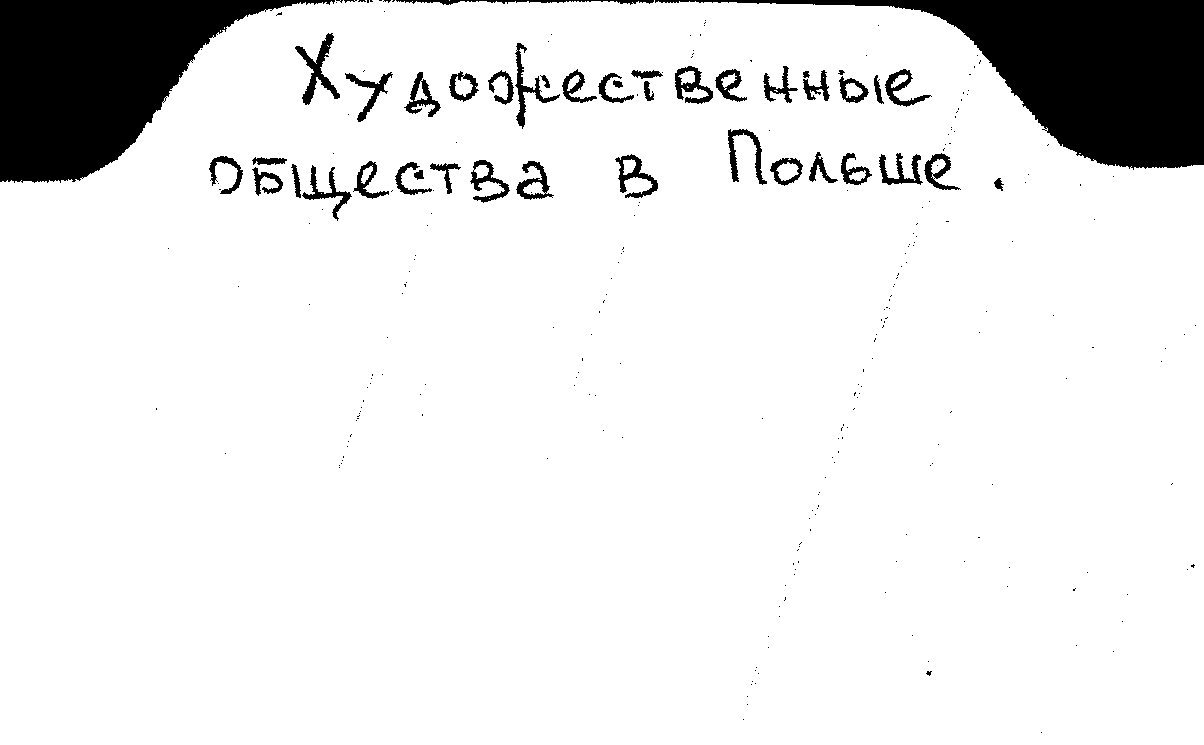 Художественные
общества в Польше.